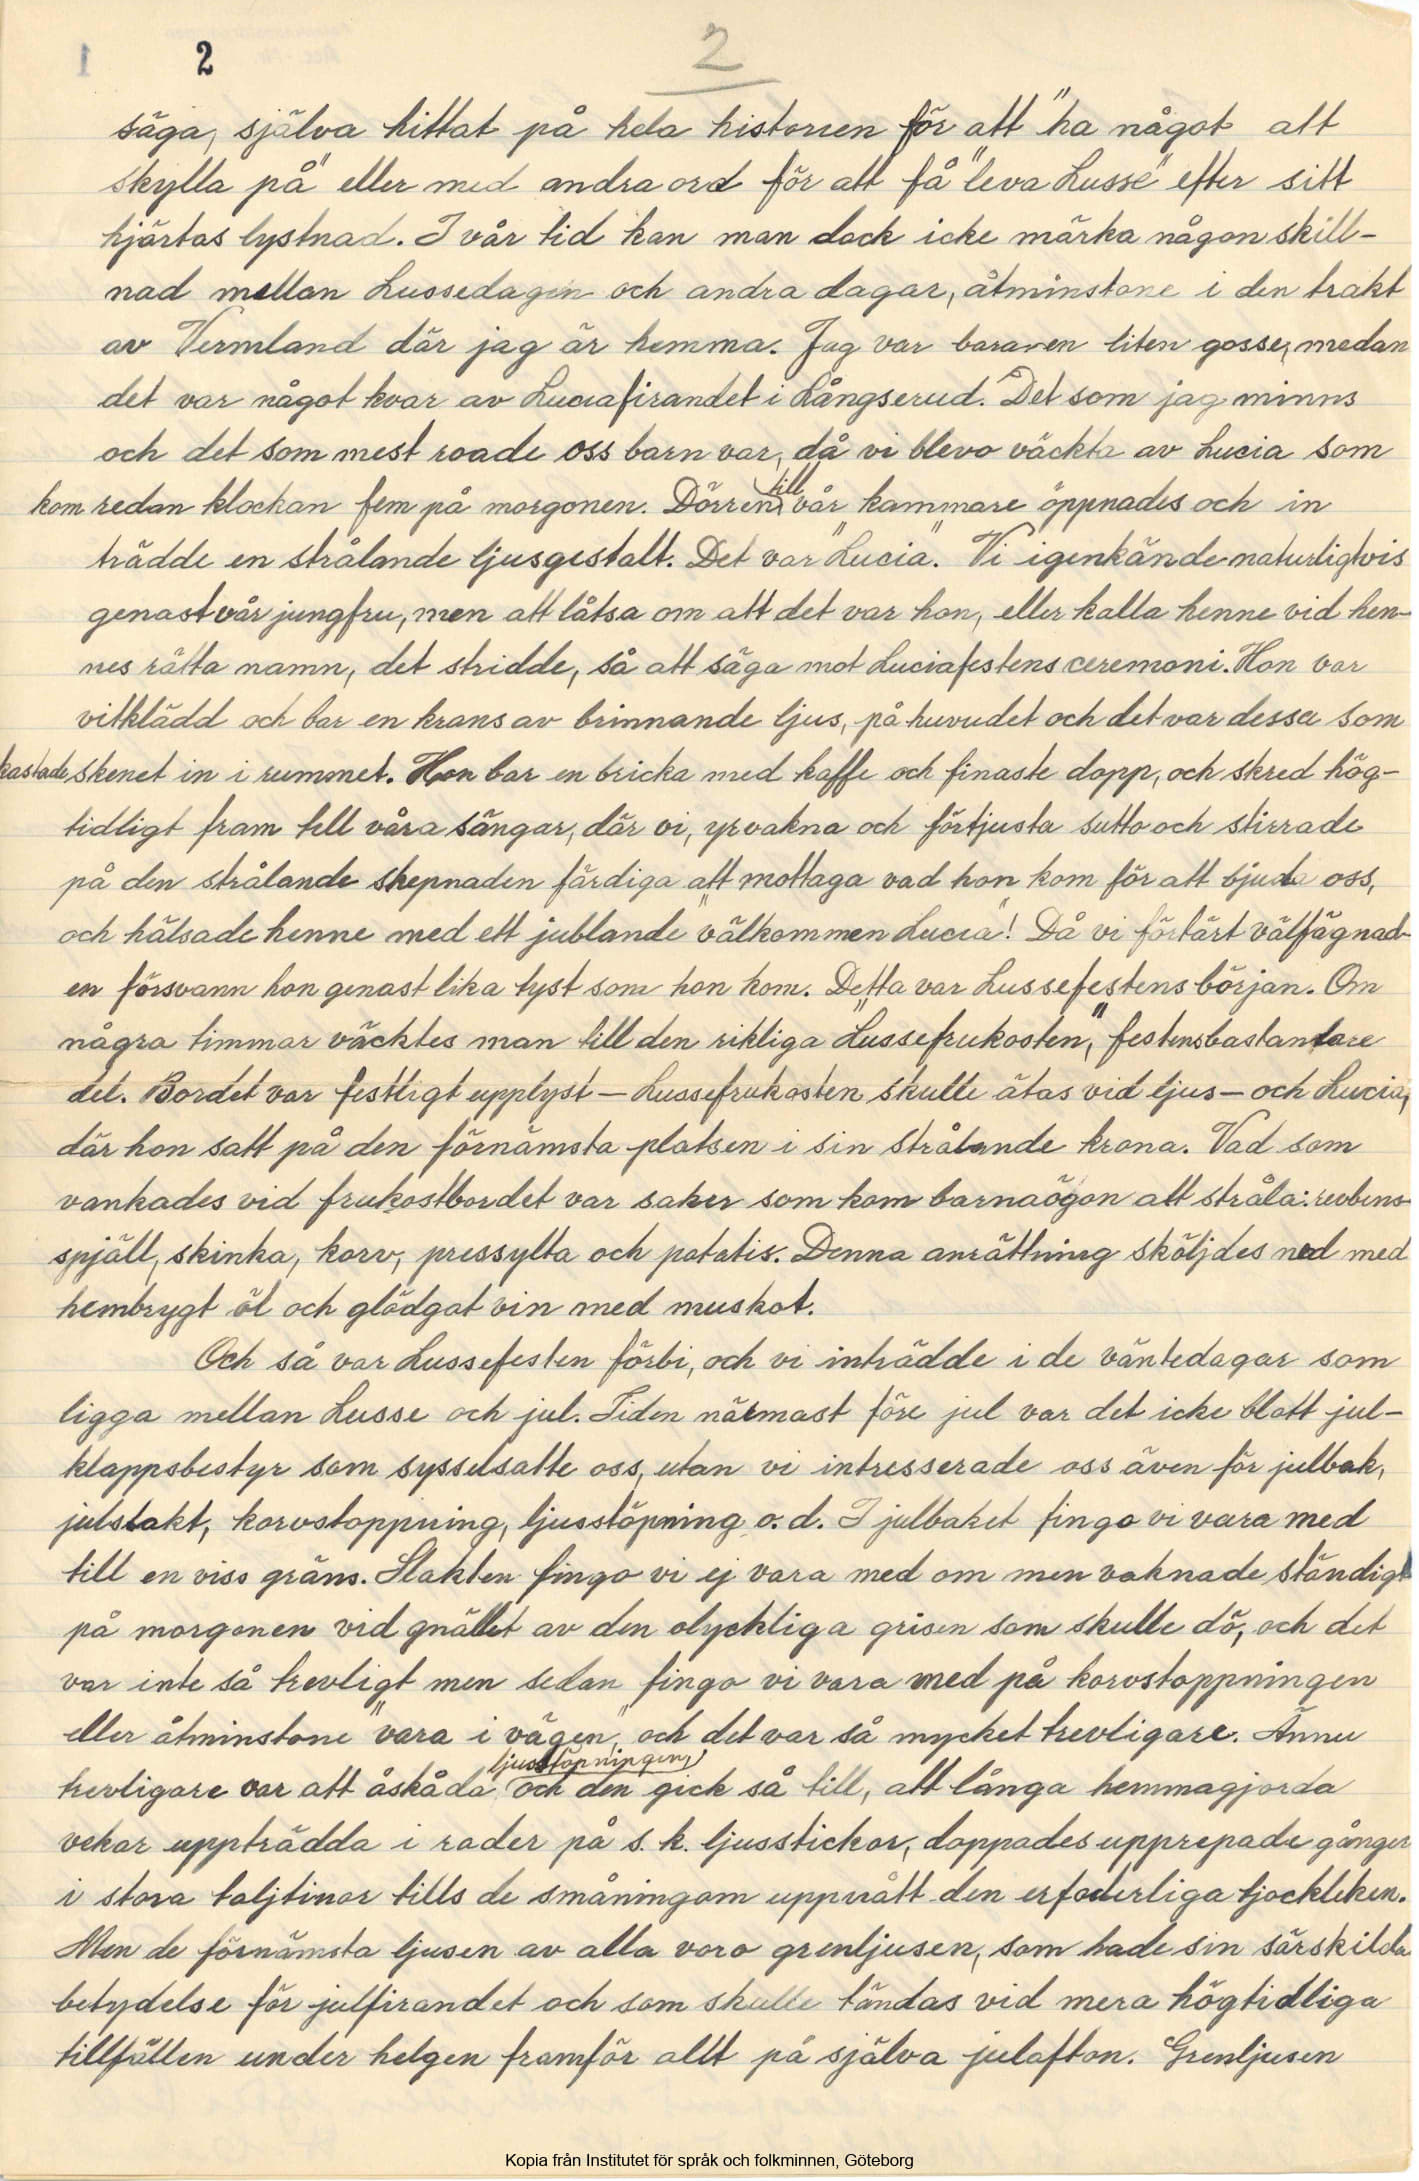 2
2
säga, själva hittat på hela historien för att "ha något att
skylla på" eller med andra ord för att få "leva Lusse" efter sitt
hjärtas lystnad. I vår tid kan man dock icke märka någon skill-
nad mellan Lussedagen och andra dagar, åtminstone i den trakt
av Vermland där jag är hemma. Jag var bara en liten gosse, medan
det var något kvar av Luciafirandet i Långserud. Det som jag minns
och det som mest roade oss barn var, då vi blevo väckta av Lucia som
kom redan klockan fem på morgonen. Dörren till vår kammare öppnades och in
trädde en strålande ljusgestalt. Det var "Lucia". Vi igenkände naturligtvis
genast vår jungfru, men att låtsa om att det var hon, eller kalla henne vid hen-
nes rätta namn, det stridde, så att säga mot Luciafestens ceremoni. Hon var
vitklädd och bar en krans av brinnande ljus, på huvudet och det var dessa som
kastade skenet in i rummet. Hon bar en bricka med kaffe och finaste dopp, och skred hög-
tidligt fram till våra sängar, där vi, yrvakna och förtjusta sutto och stirrade
på den strålande skepnaden färdiga att mottaga vad hon kom för att bjuda oss,
och hälsade henne med ett jublande "välkommen Lucia"! Då vi förtärt välfägnad-
en försvann hon genast lika tyst som hon kom. Detta var Lussefestens början. Om
några timmar väcktes man till den rikliga "Lussefrukosten", festens bastantare
del. Bordet var festligt upplyst – Lussefrukosten skulle ätas vid ljus – och Lucia,
där hon satt på den förnämsta platsen i sin strålande krona. Vad som
vankades vid frukostbordet var saker som kom barnaögon att stråla: revbens-
spjäll, skinka, korv, pressylta och potatis. Denna anrättning sköljdes ned med
hembrygt öl och glödgat vin med muskot.
Och så var Lussefesten förbi, och vi inträdde i de väntedagar som
ligga mellan Lusse och jul. Tiden närmast före jul var det icke blott jul-
klappsbestyr som sysselsatte oss, utan vi intresserade oss även för julbak,
julslakt, korvstoppning, ljusstöpning o. d. I julbaket fingo vi vara med
till en viss gräns. Slakten fingo vi ej vara med om men vaknade ständigt
på morgonen vid gnället av den olyckliga grisen som skulle dö, och det
var inte så trevligt men sedan fingo vi vara med på korvstoppningen
eller åtminstone "vara i vägen" och det var så mycket trevligare. Ännu
trevligare var att åskåda ljusstöpningen, och den gick så till, att långa hemmagjorda
vekar uppträdda i rader på s. k. ljusstickor, doppades upprepade gånger
i stora taljtinor tills de småningom uppnått den erfoderliga tjockleken.
Men de förnämsta ljusen av alla voro grenljusen, som hade sin särskilda
betydelse för julfirandet och som skulle tändas vid mera högtidliga
tillfällen under helgen framför allt på själva julafton. Grenljusen
Kopia från Institutet för språk och folkminnen, Göteborg